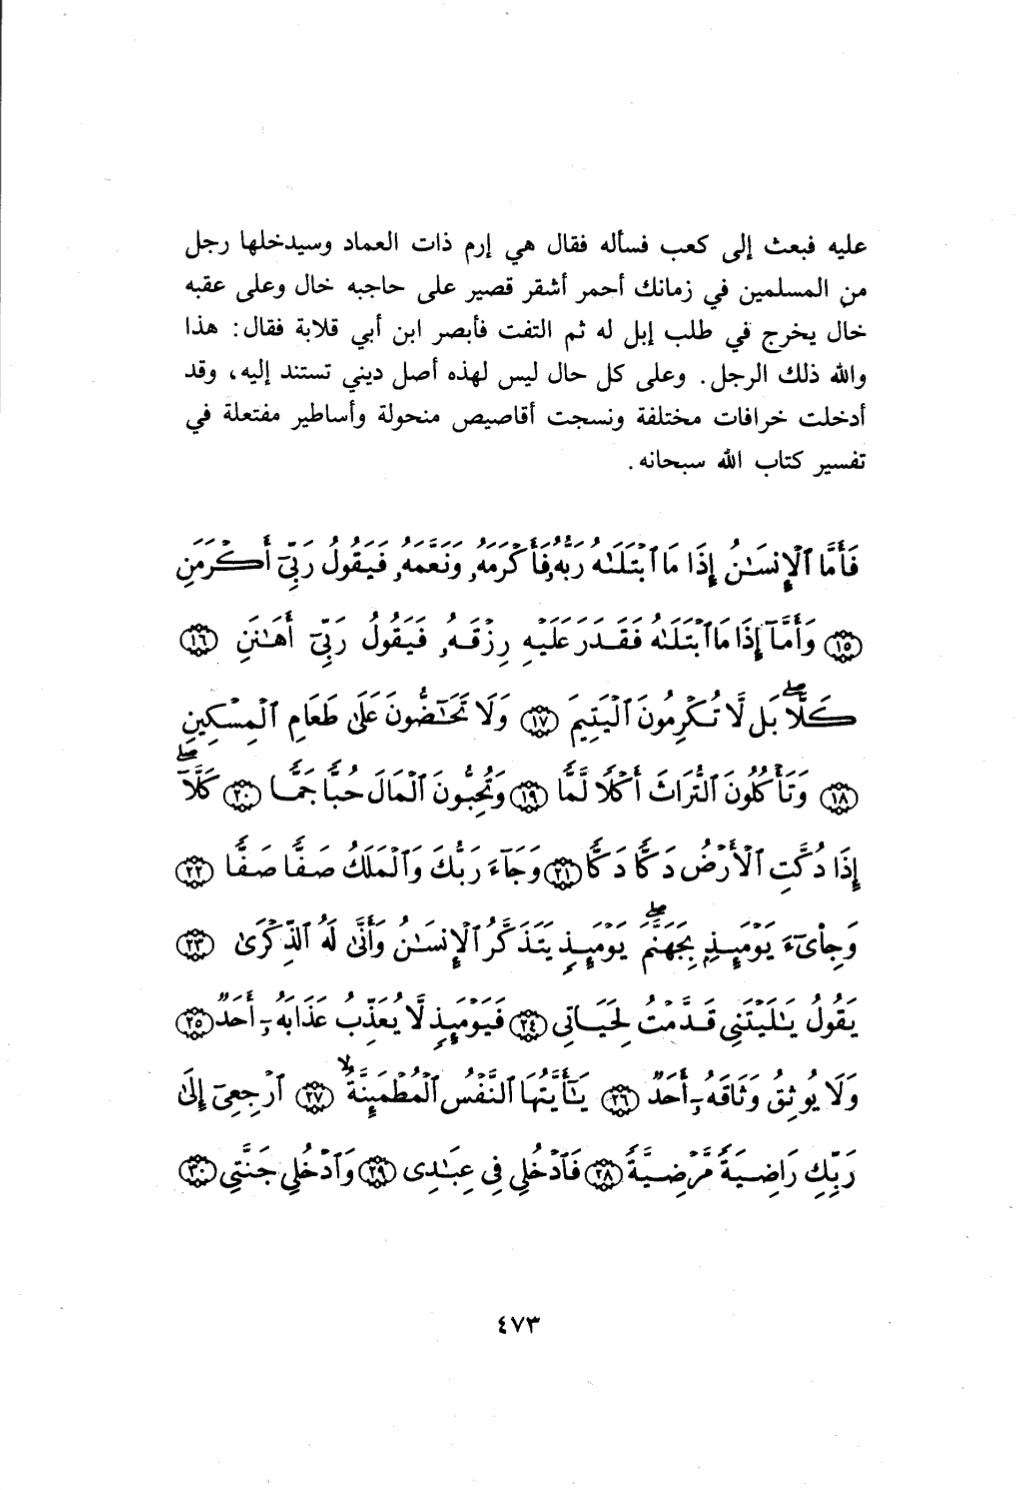 عليه فبعث إلى كعب فسأله فقال هي إرم ذات العماد وسيدخلها رجل
من المسلمين في زمانك أحمر أشقر قصير على حاجبه خال وعلى عقبه
خال يخرج في طلب إبل له ثم التفت فأبصر ابن أبي قلابة فقال: هذا
والله ذلك الرجل. وعلى كل حال ليس لهذه أصل ديني تستند إليه، وقد
أدخلت خرافات مختلفة ونسجت أقاصيص منحولة وأساطير مفتعلة في
تفسير كتاب الله سبحانه.
فَأَمَّا ٱلْإِنسَـٰنُ إِذَا مَا ٱبْتَلَىٰهُ رَبُّهُۥ فَأَكْرَمَهُۥ وَنَعَّمَهُۥ فَيَقُولُ رَبِّىٓ أَكْرَمَنِ
١٥ وَأَمَّآ إِذَا مَا ٱبْتَلَىٰهُ فَقَدَرَ عَلَيْهِ رِزْقَهُۥ فَيَقُولُ رَبِّىٓ أَهَـٰنَنِ ١٦
كَلَّا ۖ بَل لَّا تُكْرِمُونَ ٱلْيَتِيمَ ١٧ وَلَا تَحَـٰٓضُّونَ عَلَىٰ طَعَامِ ٱلْمِسْكِينِ
١٨ وَتَأْكُلُونَ ٱلتُّرَاثَ أَكْلًا لَّمًّا ١٩ وَتُحِبُّونَ ٱلْمَالَ حُبًّا جَمًّا ٢٠ كَلَّآ ۖ
إِذَا دُكَّتِ ٱلْأَرْضُ دَكًّا دَكًّا ٢١ وَجَآءَ رَبُّكَ وَٱلْمَلَكُ صَفًّا صَفًّا ٢٢
وَجِا۟ىٓءَ يَوْمَئِذٍۭ بِجَهَنَّمَ ۚ يَوْمَئِذٍ يَتَذَكَّرُ ٱلْإِنسَـٰنُ وَأَنَّىٰ لَهُ ٱلذِّكْرَىٰ ٢٣
يَقُولُ يَـٰلَيْتَنِى قَدَّمْتُ لِحَيَاتِى ٢٤ فَيَوْمَئِذٍ لَّا يُعَذِّبُ عَذَابَهُۥٓ أَحَدٌ ٢٥
وَلَا يُوثِقُ وَثَاقَهُۥٓ أَحَدٌ ٢٦ يَـٰٓأَيَّتُهَا ٱلنَّفْسُ ٱلْمُطْمَئِنَّةُ ٢٧ ٱرْجِعِىٓ إِلَىٰ
رَبِّكِ رَاضِيَةً مَّرْضِيَّةً ٢٨ فَٱدْخُلِى فِى عِبَـٰدِى ٢٩ وَٱدْخُلِى جَنَّتِى ٣٠
٤٧٣